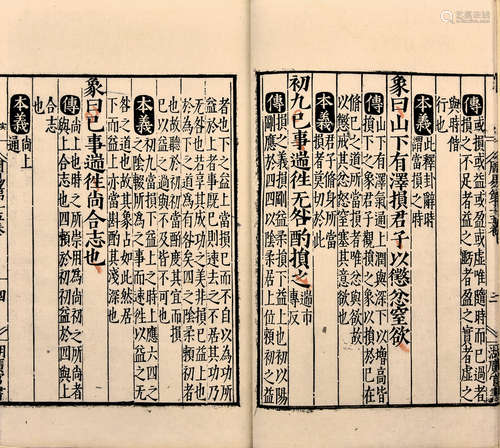 盈或虛唯隨時而已過者
損之不足者益之虧者盈之實者虛之
與時偕
行也
本義
此釋卦辭時
謂當損之時
象曰山下有澤損君子以懲忿窒欲
傳
山下有澤氣通上潤與深下以增高皆
損下之象君子觀損之象以損於已在
修已之道所當損者唯忿與慾故
以懲戒其忿怒窒塞其意慾也
本義
君子修身所當
損者莫切於此
初九已事遄徃无咎酌損之
遄市
專反
傳
損之義損剛益柔損下益上也初以陽
剛應於四四以陰柔居上位賴初之益
者也下之益上當損已而不自以為功所
益於上者事既已則速去之不居其功乃
无咎也若享其成功之美非損已益上也
於為下之道為有咎矣四之陰柔賴初者
也故聽於初初當酌度其宜而損
已以益之過與不及皆不可也
本義
初九當損下益上之時上應六四之
陰輟所為之事而速徃以益之无
咎之道也故其象占如此然居
下而益上亦當斟酌其淺深也
象曰已事遄徃尚合志也
傳
尚上也時之所崇用為尚初之所尚者
與上合志也四賴於初初益於四與上
合志
也
本義
尚上
通
四